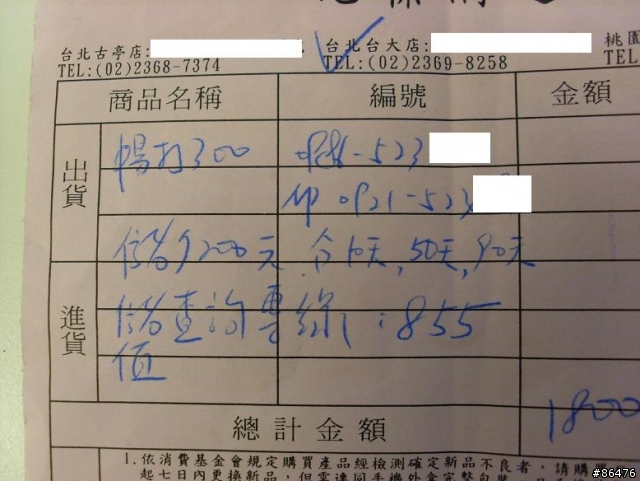 台北古亭店: 台北台大店: 桃園
TEL:(02)2368-7374 TEL:(02)2369-8258 TEL
商品名稱 編號 金額
出貨 暢打300 0986-523
0921-523
儲值200元 合10天,50天,90天
進貨 儲值查詢專線:855
1800
總計金額
1.依消費基金會規定購買產品經檢測確定新品不良者,請購
起七日內更換新品,但需連同手機外盒完整包裝
#86476